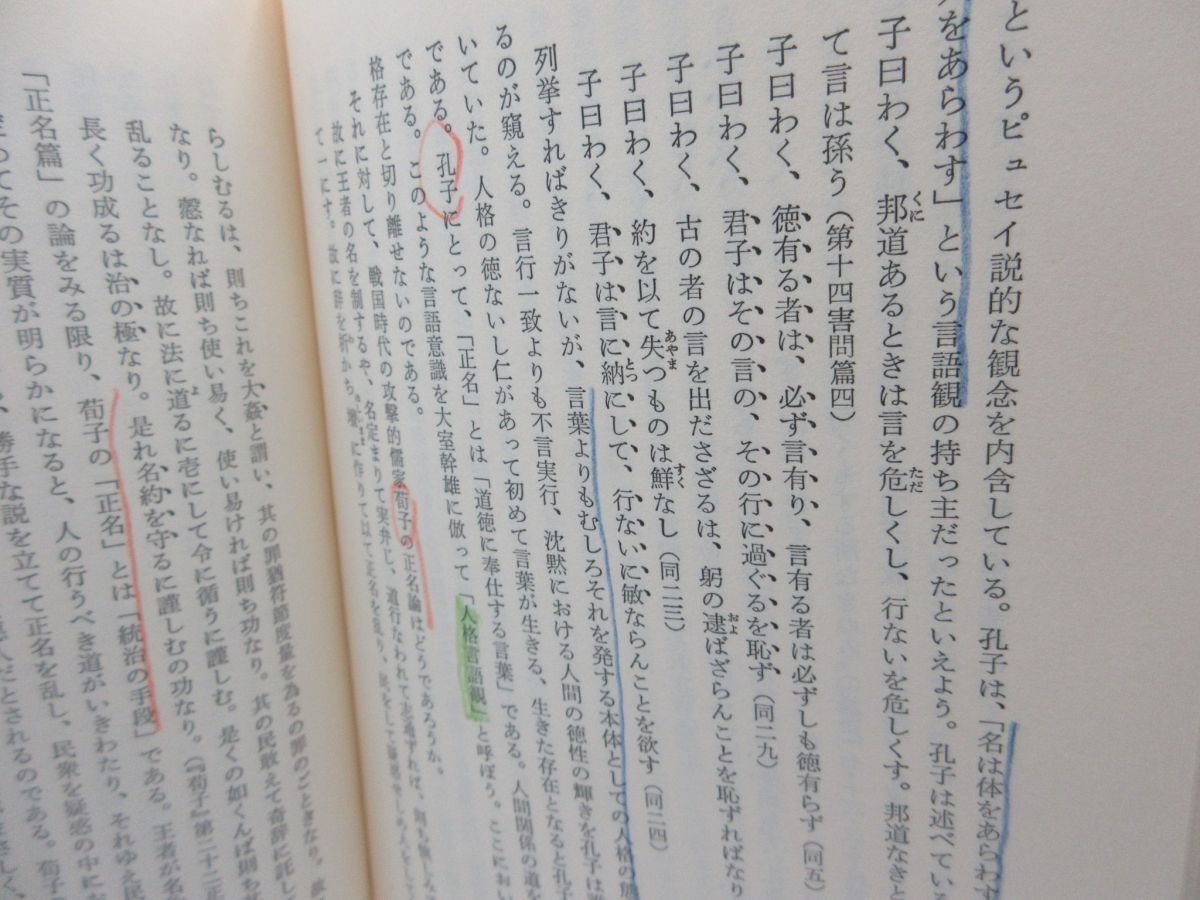 というピュセイ説的な観念を内含している。孔子は、「名は体をあらわす
をあらわす」という言語観の持ち主だったといえよう。孔子は述べている
子曰わく、邦道あるときは言を危しくし、行ないを危しくす。邦道なきと
て言は孫う(第十四害問篇四)
子曰わく、徳有る者は、必ず言有り、言有る者は必ずしも徳有らず(同五)
子曰わく、君子はその言の、その行に過ぐるを恥ず(同二九)
子曰わく、古の者の言を出ださざるは、躬の逮ばざらんことを恥ずればなり
子曰わく、約を以て失つものは鮮なし(同二三)
子曰わく、君子は言に納にして、行ないに敏ならんことを欲す(同二四)
列挙すればきりがないが、言葉よりもむしろそれを発する本体としての人格の態
るのが窺える。言行一致よりも不言実行、沈黙における人間の徳性の輝きを孔子は
いていた。人格の徳ないし仁があって初めて言葉が生きる、生きた存在となると孔子
である。孔子にとって、「正名」とは「道徳に奉仕する言葉」である。人間関係の道を
である。このような言語意識を大室幹雄に倣って「人格言語観」と呼ぼう。ここにおい
格存在と切り離せないのである。
それに対して、戦国時代の攻撃的儒家荀子の正名論はどうであろうか。
故に王者の名を制するや、名定まりて実弁じ、道行なわれて志通ずれば、則ち
て一にす。故に辞を析かち、に作りて以て正名を乱り、
らしむるは、則ちこれを大姦と謂い、其の罪猶符節度量を為るの罪のごときなり。故
なり。愨なれば則ち使い易く、使い易ければ則ち功なり。其の民敢えて奇辞に託し
乱ることなし。故に法に道るに壱にして令に循うに謹しむ。是くの如くんば則ち
長く功成るは治の極なり。是れ名約を守るに謹しむの功なり。(『荀子』第二十二正
「正名篇」の論をみる限り、荀子の「正名」とは「統治の手段」である。王者が名
てその実質が明らかになると、人の行うべき道がいきわたり、それゆえ民
勝手な説を立てて正名を乱し、民衆を疑惑の中に
人だとされるのである。荀子